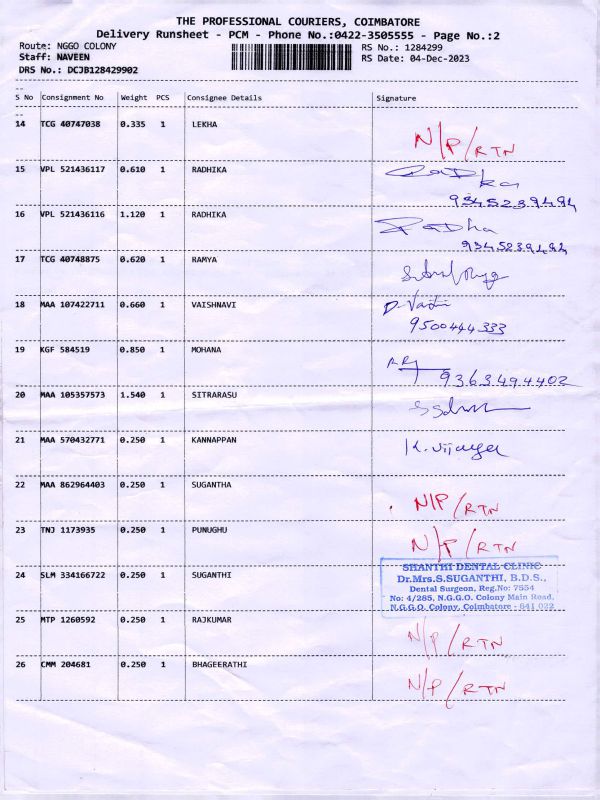 THE PROFESSIONAL COURIERS, COIMBATORE
Delivery Runsheet - PCM - Phone No.:0422-3505555 - Page No.:2
Route: NGGO COLONY RS No.: 1284299
Staff: NAVEEN RS Date: 04-Dec-2023
DRS No.: DCJB128429902
S No Consignment No Weight PCS Consignee Details Signature
14 TCG 40747038 0.335 1 LEKHA N/P/RTN
15 VPL 521436117 0.610 1 RADHIKA
9345239494
16 VPL 521436116 1.120 1 RADHIKA Radha
9345239494
17 TCG 40748875 0.620 1 RAMYA
18 MAA 107422711 0.660 1 VAISHNAVI
9500444333
19 KGF 584519 0.850 1 MOHANA
9363494402
20 MAA 105357573 1.540 1 SITRARASU
21 MAA 570432771 0.250 1 KANNAPPAN K. Vijaya
22 MAA 862964403 0.250 1 SUGANTHA N/P/RTN
23 TNJ 1173935 0.250 1 PUNUGHU N/P/RTN
24 SLM 334166722 0.250 1 SUGANTHI SHANTHI DENTAL CLINIC
Dr.Mrs.S.SUGANTHI, B.D.S.,
Dental Surgeon, Reg.No: 7554
No: 4/285, N.G.G.O. Colony Main Road,
N.G.G.O. Colony, Coimbatore - 641 022
25 MTP 1260592 0.250 1 RAJKUMAR N/P/RTN
26 CMM 204681 0.250 1 BHAGEERATHI N/P/RTN